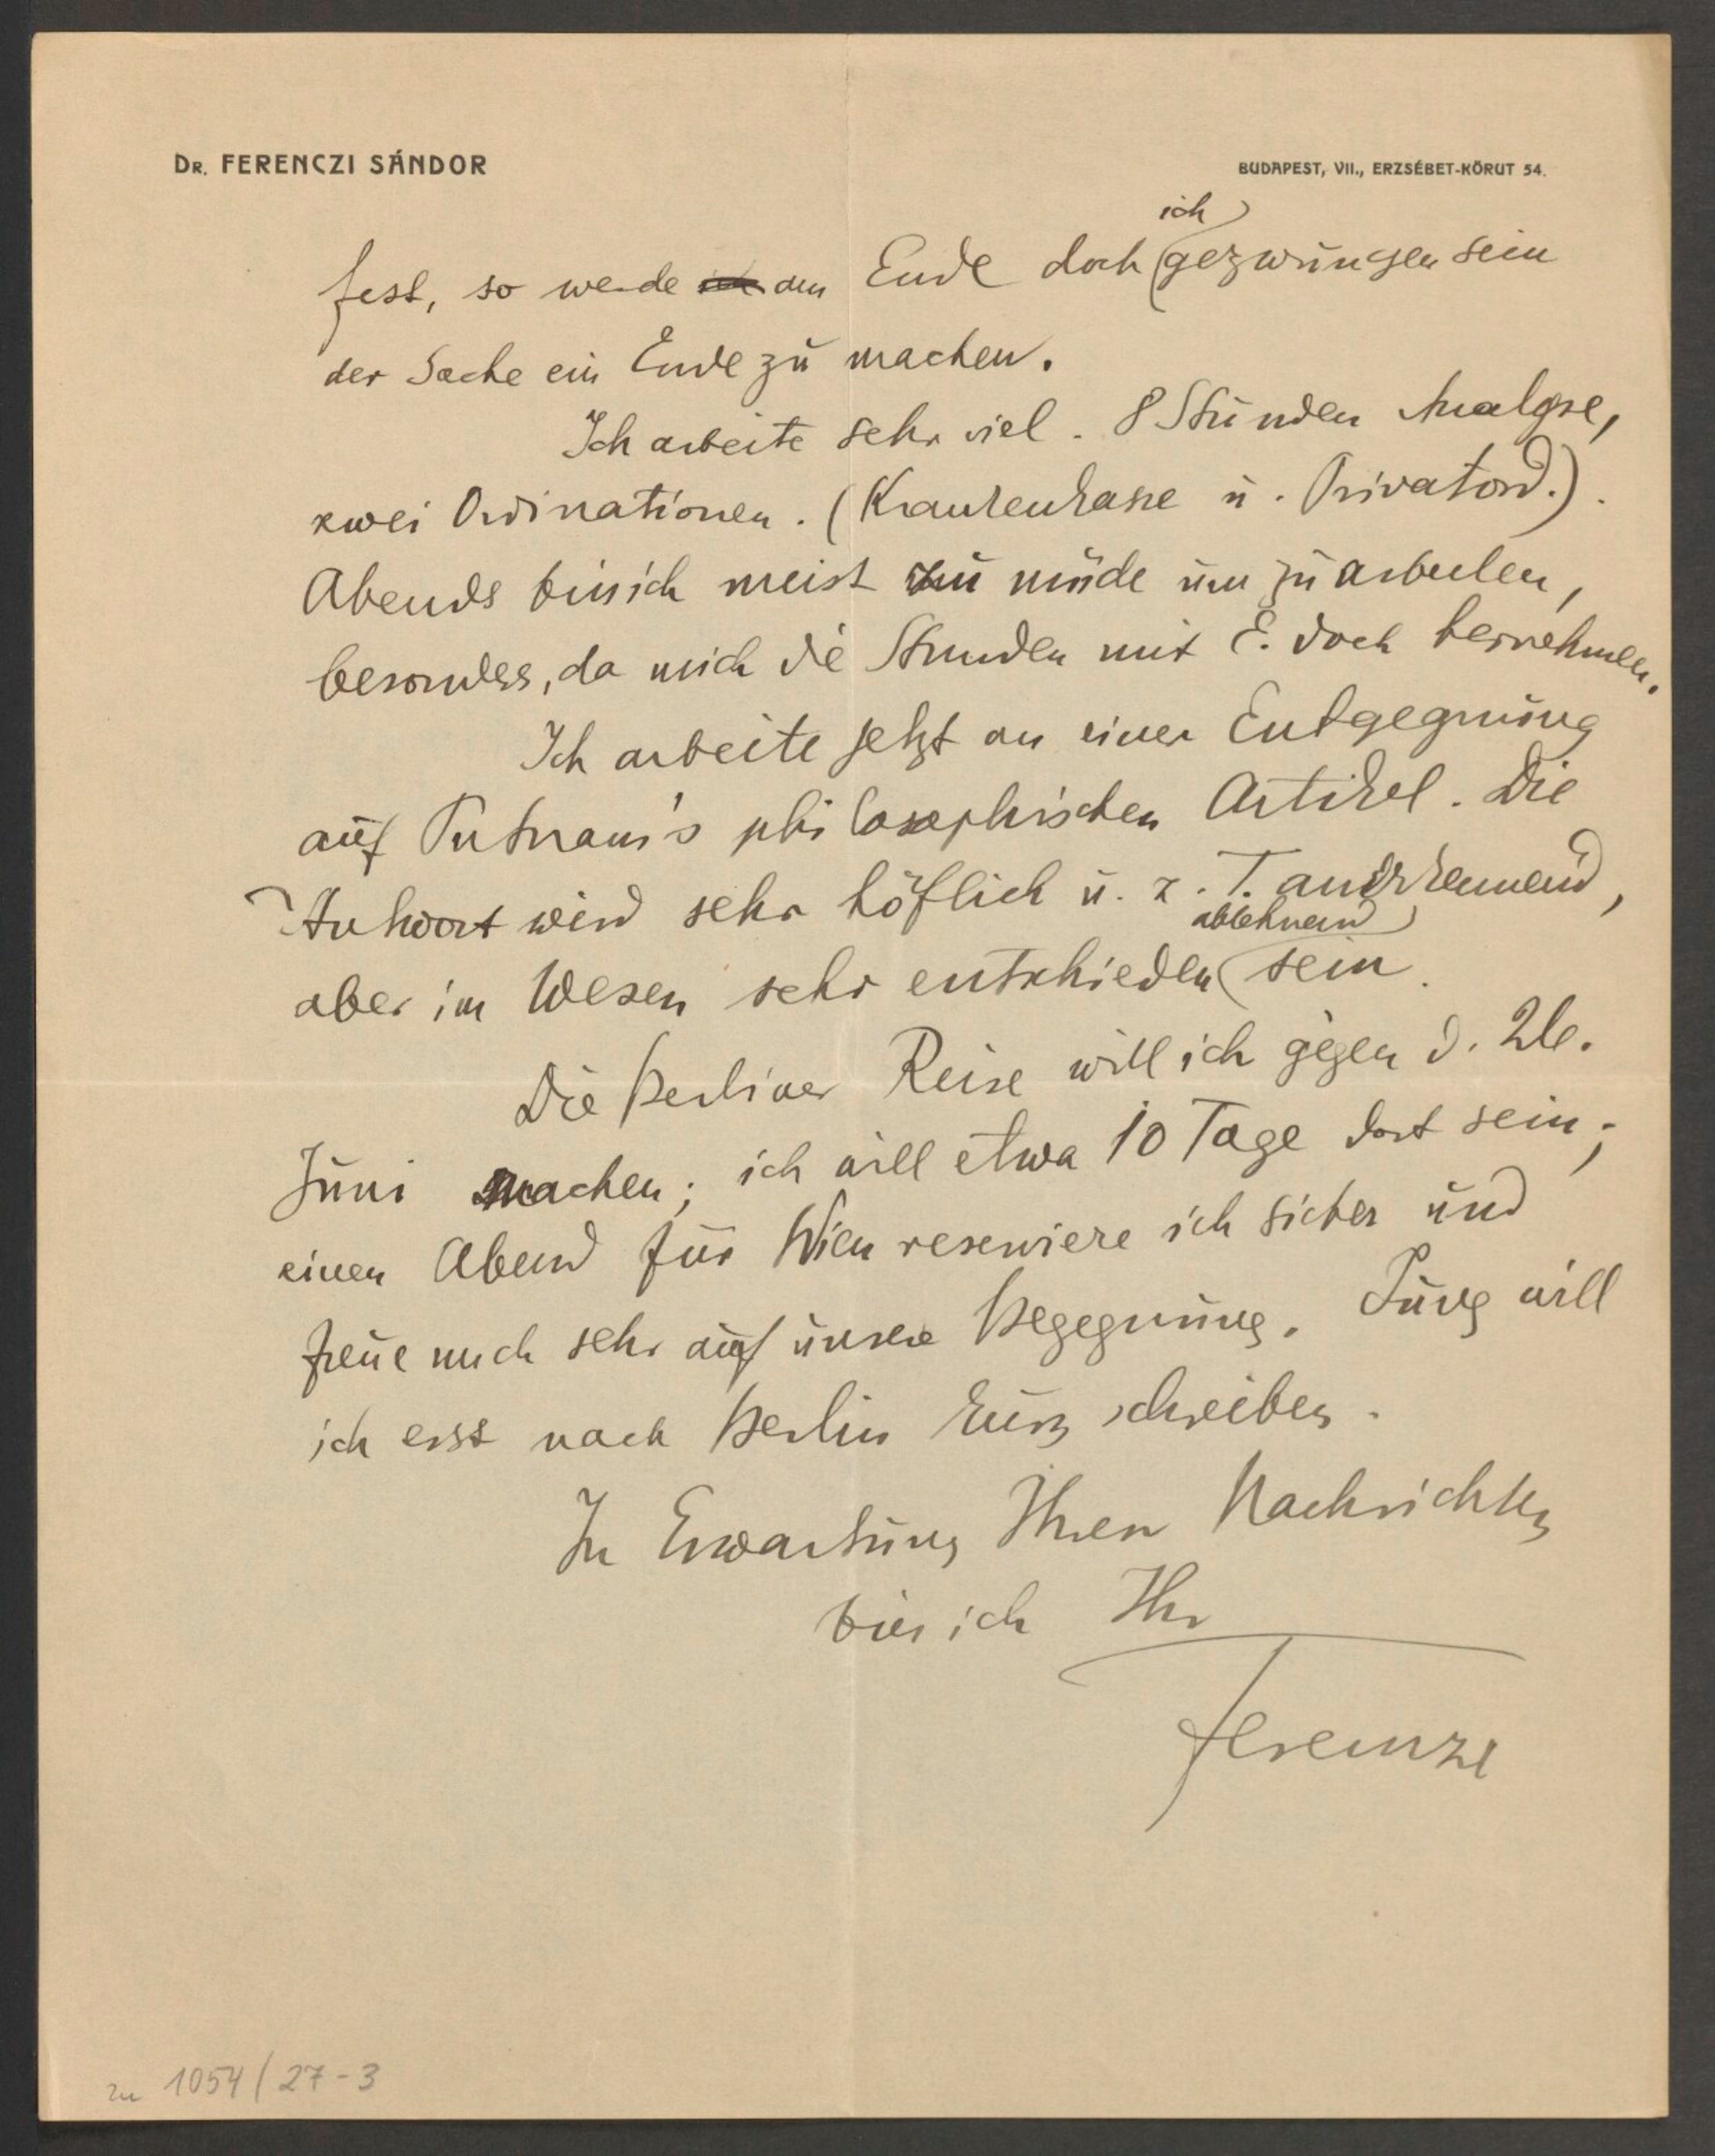 DR. FERENCZI SÁNDOR
BUDAPEST, VII., ERZSÉBET-KÖRUT 54.
ich
fest, so werde am Ende doch gezwungen sein
der Sache ein Ende zu machen.
Ich arbeite sehr viel. 8 Stunden Analyse,
zwei Ordinationen. (Krankenkasse u. Privatord.).
Abends bin ich meist zu müde um zu arbeiten,
besonders, da mich die Stunden mit E. doch hernehmen.
Ich arbeite jetzt an einer Entgegnung
auf Putnam's philosophischen Artikel. Die
Antwort wird sehr höflich u. z. T. anerkennend,
ablehnend
aber im Wesen sehr entschieden sein.
Die Berliner Reise will ich gegen d. 26.
Juni machen; ich will etwa 10 Tage dort sein;
einen Abend für Wien reserviere ich sicher und
freue mich sehr auf unsere Begegnung. Jung will
ich erst nach Berlin kurz schreiben.
In Erwartung Ihrer Nachrichten
bin ich Ihr
Ferenczi
zu 1054/27-3